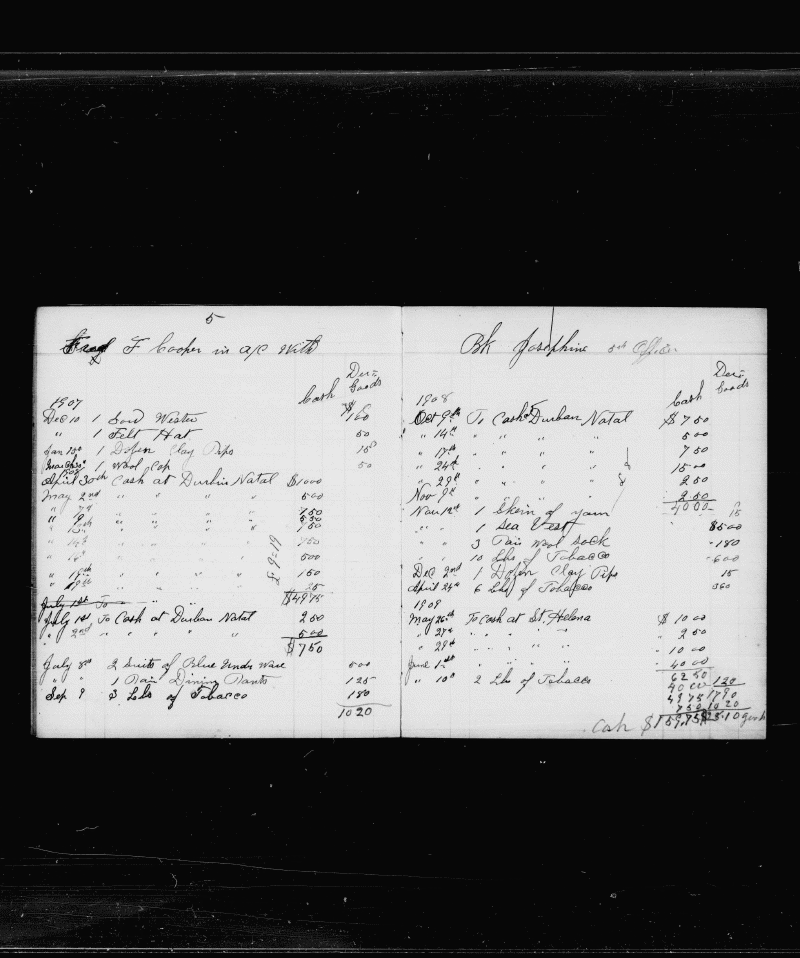 5
F Cooper in a/c With
Cash Goods
1907
Dec 10 1 Sou Wester $160
" 1 Felt Hat 50
1 Dozen Clay Pips 15
1 Wool Cap 50
April 30th Cash at Durban Natal $1000
May 2nd " " " " 500
" " " " " 150
" " " " "
" " " " " 150
" " " " " 150
" " " " " 500
" 17th " " " " 150
" 19th " " " " 25
£9=19
July 1st To " " $4975
July 1st To Cash at Durban Natal 250
" 2nd " " " " " 500
$750
July 8th 2 Suits of Blue Under Ware 500
" " 1 Pair Dining Pants 125
Sep 9 3 Lbs of Tobacco 180
1020
Bk Josephine Officer
Cash Goods
1908
Oct 9th To Cash Durban Natal $750
" 14th " " " " 500
" 17th " " " " 750
" 24th " " " " 1500
" 29th " " " " 250
Nov 9th " " " " 250
4000
Nov 12th 1 Skein of yarn 15
" " 1 Sea Vest $500
" " 3 Pair Wool Sock 180
" " 10 Lbs of Tobacco 600
Dec 2nd 1 Dozen Clay Pips 15
April 24th 6 Lbs of Tobacco 360
1909
May 26th To Cash at St. Helena $1000
" 27th " " " " 250
" 29th " " " " 1000
June 1st " " " " 4000
6250
" 10th 2 Lbs of Tobacco 120
4000 1790
4975 1020
750
Cash $159.75